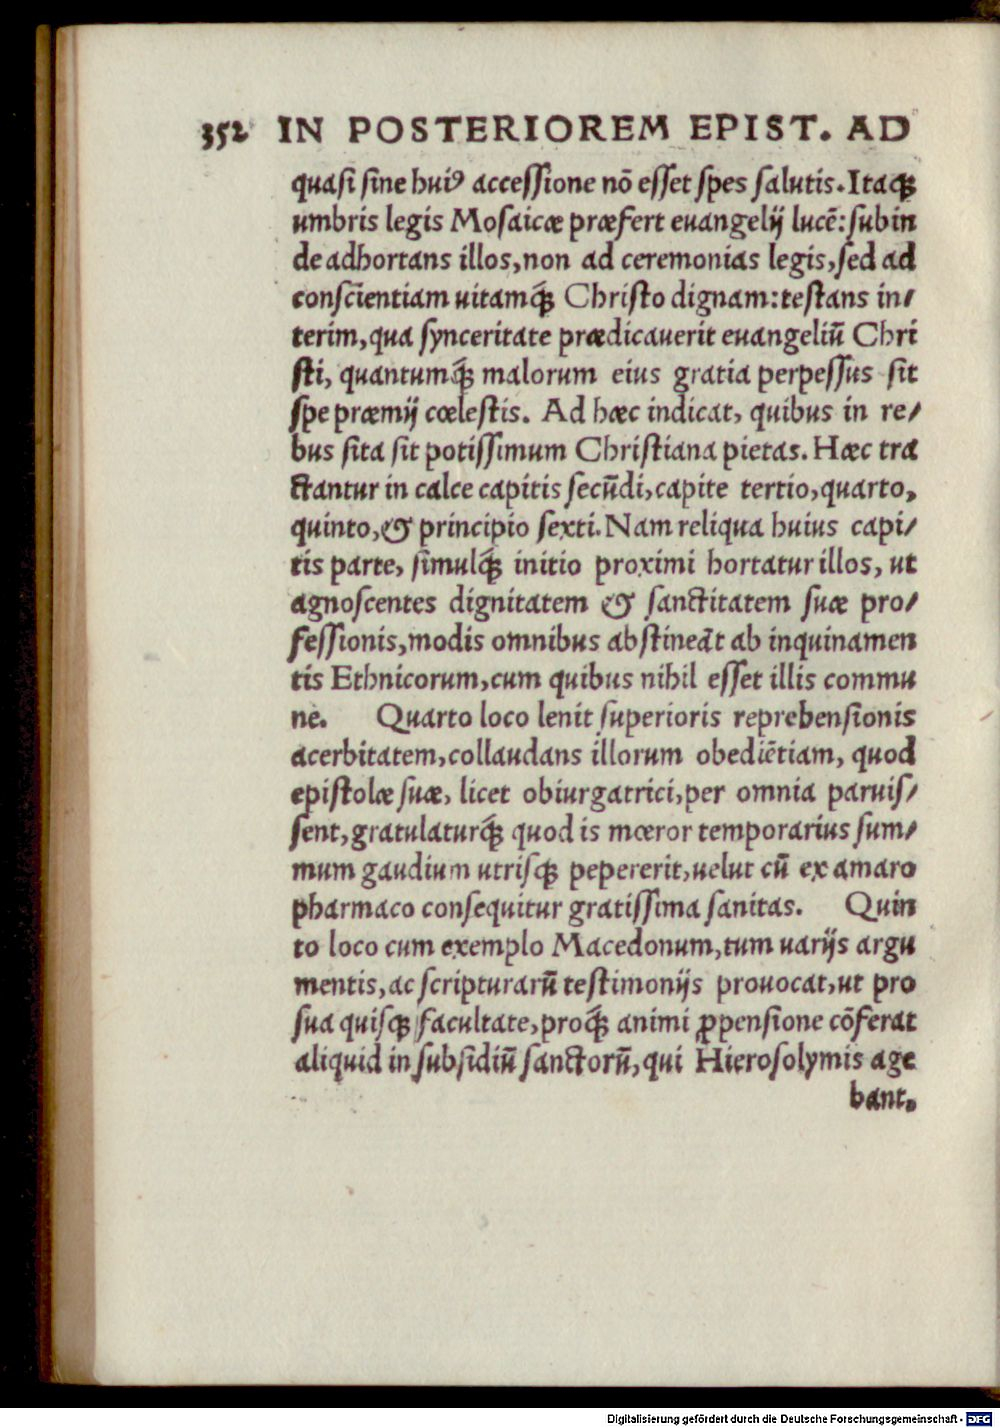 352 IN POSTERIOREM EPIST. AD
quasi sine huiꝰ accessione nō esset spes salutis. Itaqꝫ
umbris legis Mosaicæ præfert euangelij lucē: subin
de adhortans illos, non ad ceremonias legis, sed ad
conscientiam uitamq́ꝫ Christo dignam: testans in/
terim, qua synceritate prædicauerit euangeliū Chri
sti, quantumq́ꝫ malorum eius gratia perpessus sit
spe præmij cœlestis. Ad hæc indicat, quibus in re/
bus sita sit potissimum Christiana pietas. Hæc tra
ctantur in calce capitis secūdi, capite tertio, quarto,
quinto, & principio sexti. Nam reliqua huius capi/
tis parte, simulq́ꝫ initio proximi hortatur illos, ut
agnoscentes dignitatem & sanctitatem suæ pro/
fessionis, modis omnibus abstineāt ab inquinamen
tis Ethnicorum, cum quibus nihil esset illis commu
ne. Quarto loco lenit superioris reprehensionis
acerbitatem, collaudans illorum obediētiam, quod
epistolæ suæ, licet obiurgatrici, per omnia paruis/
sent, gratulaturq́ꝫ quod is mœror temporarius sum/
mum gaudium utrisqꝫ pepererit, uelut cū ex amaro
pharmaco consequitur gratissima sanitas. Quin
to loco cum exemplo Macedonum, tum uarijs argu
mentis, ac scripturarū testimonijs prouocat, ut pro
sua quisqꝫ facultate, proq́ꝫ animi ꝓpensione cōferat
aliquid in subsidiū sanctorū, qui Hierosolymis age
bant.
Digitalisierung gefördert durch die Deutsche Forschungsgemeinschaft - DFG